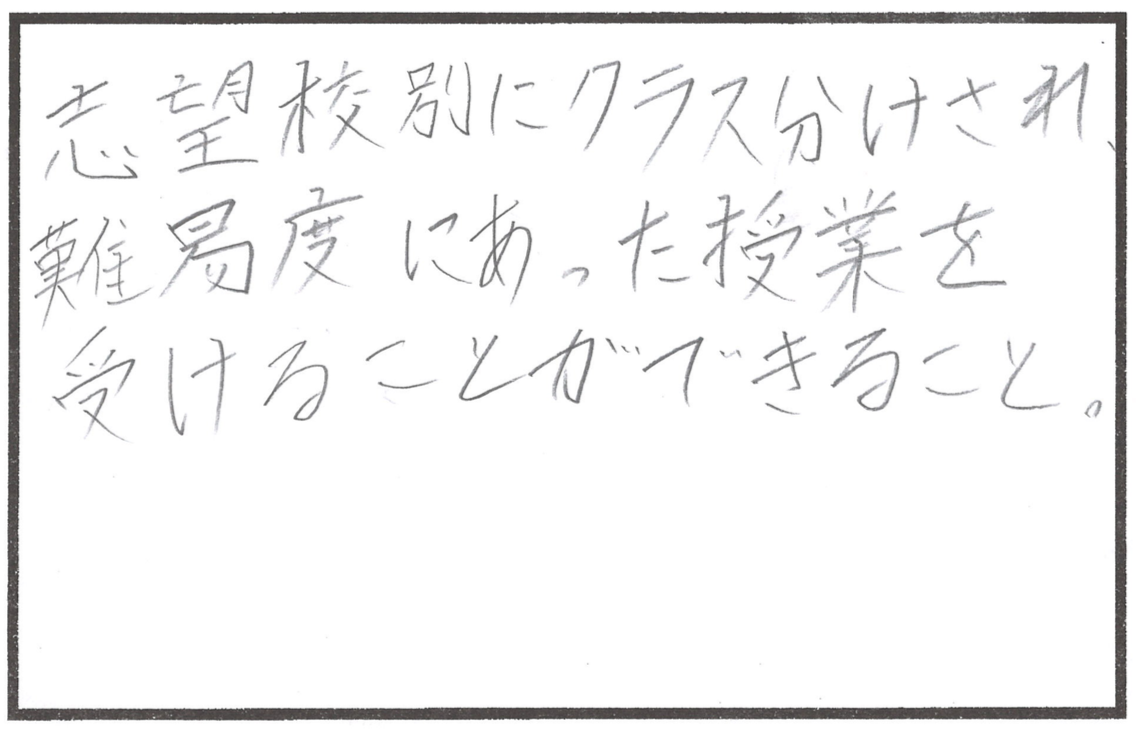 志望校別にクラス分けされ、
難易度にあった授業を
受けることができること。